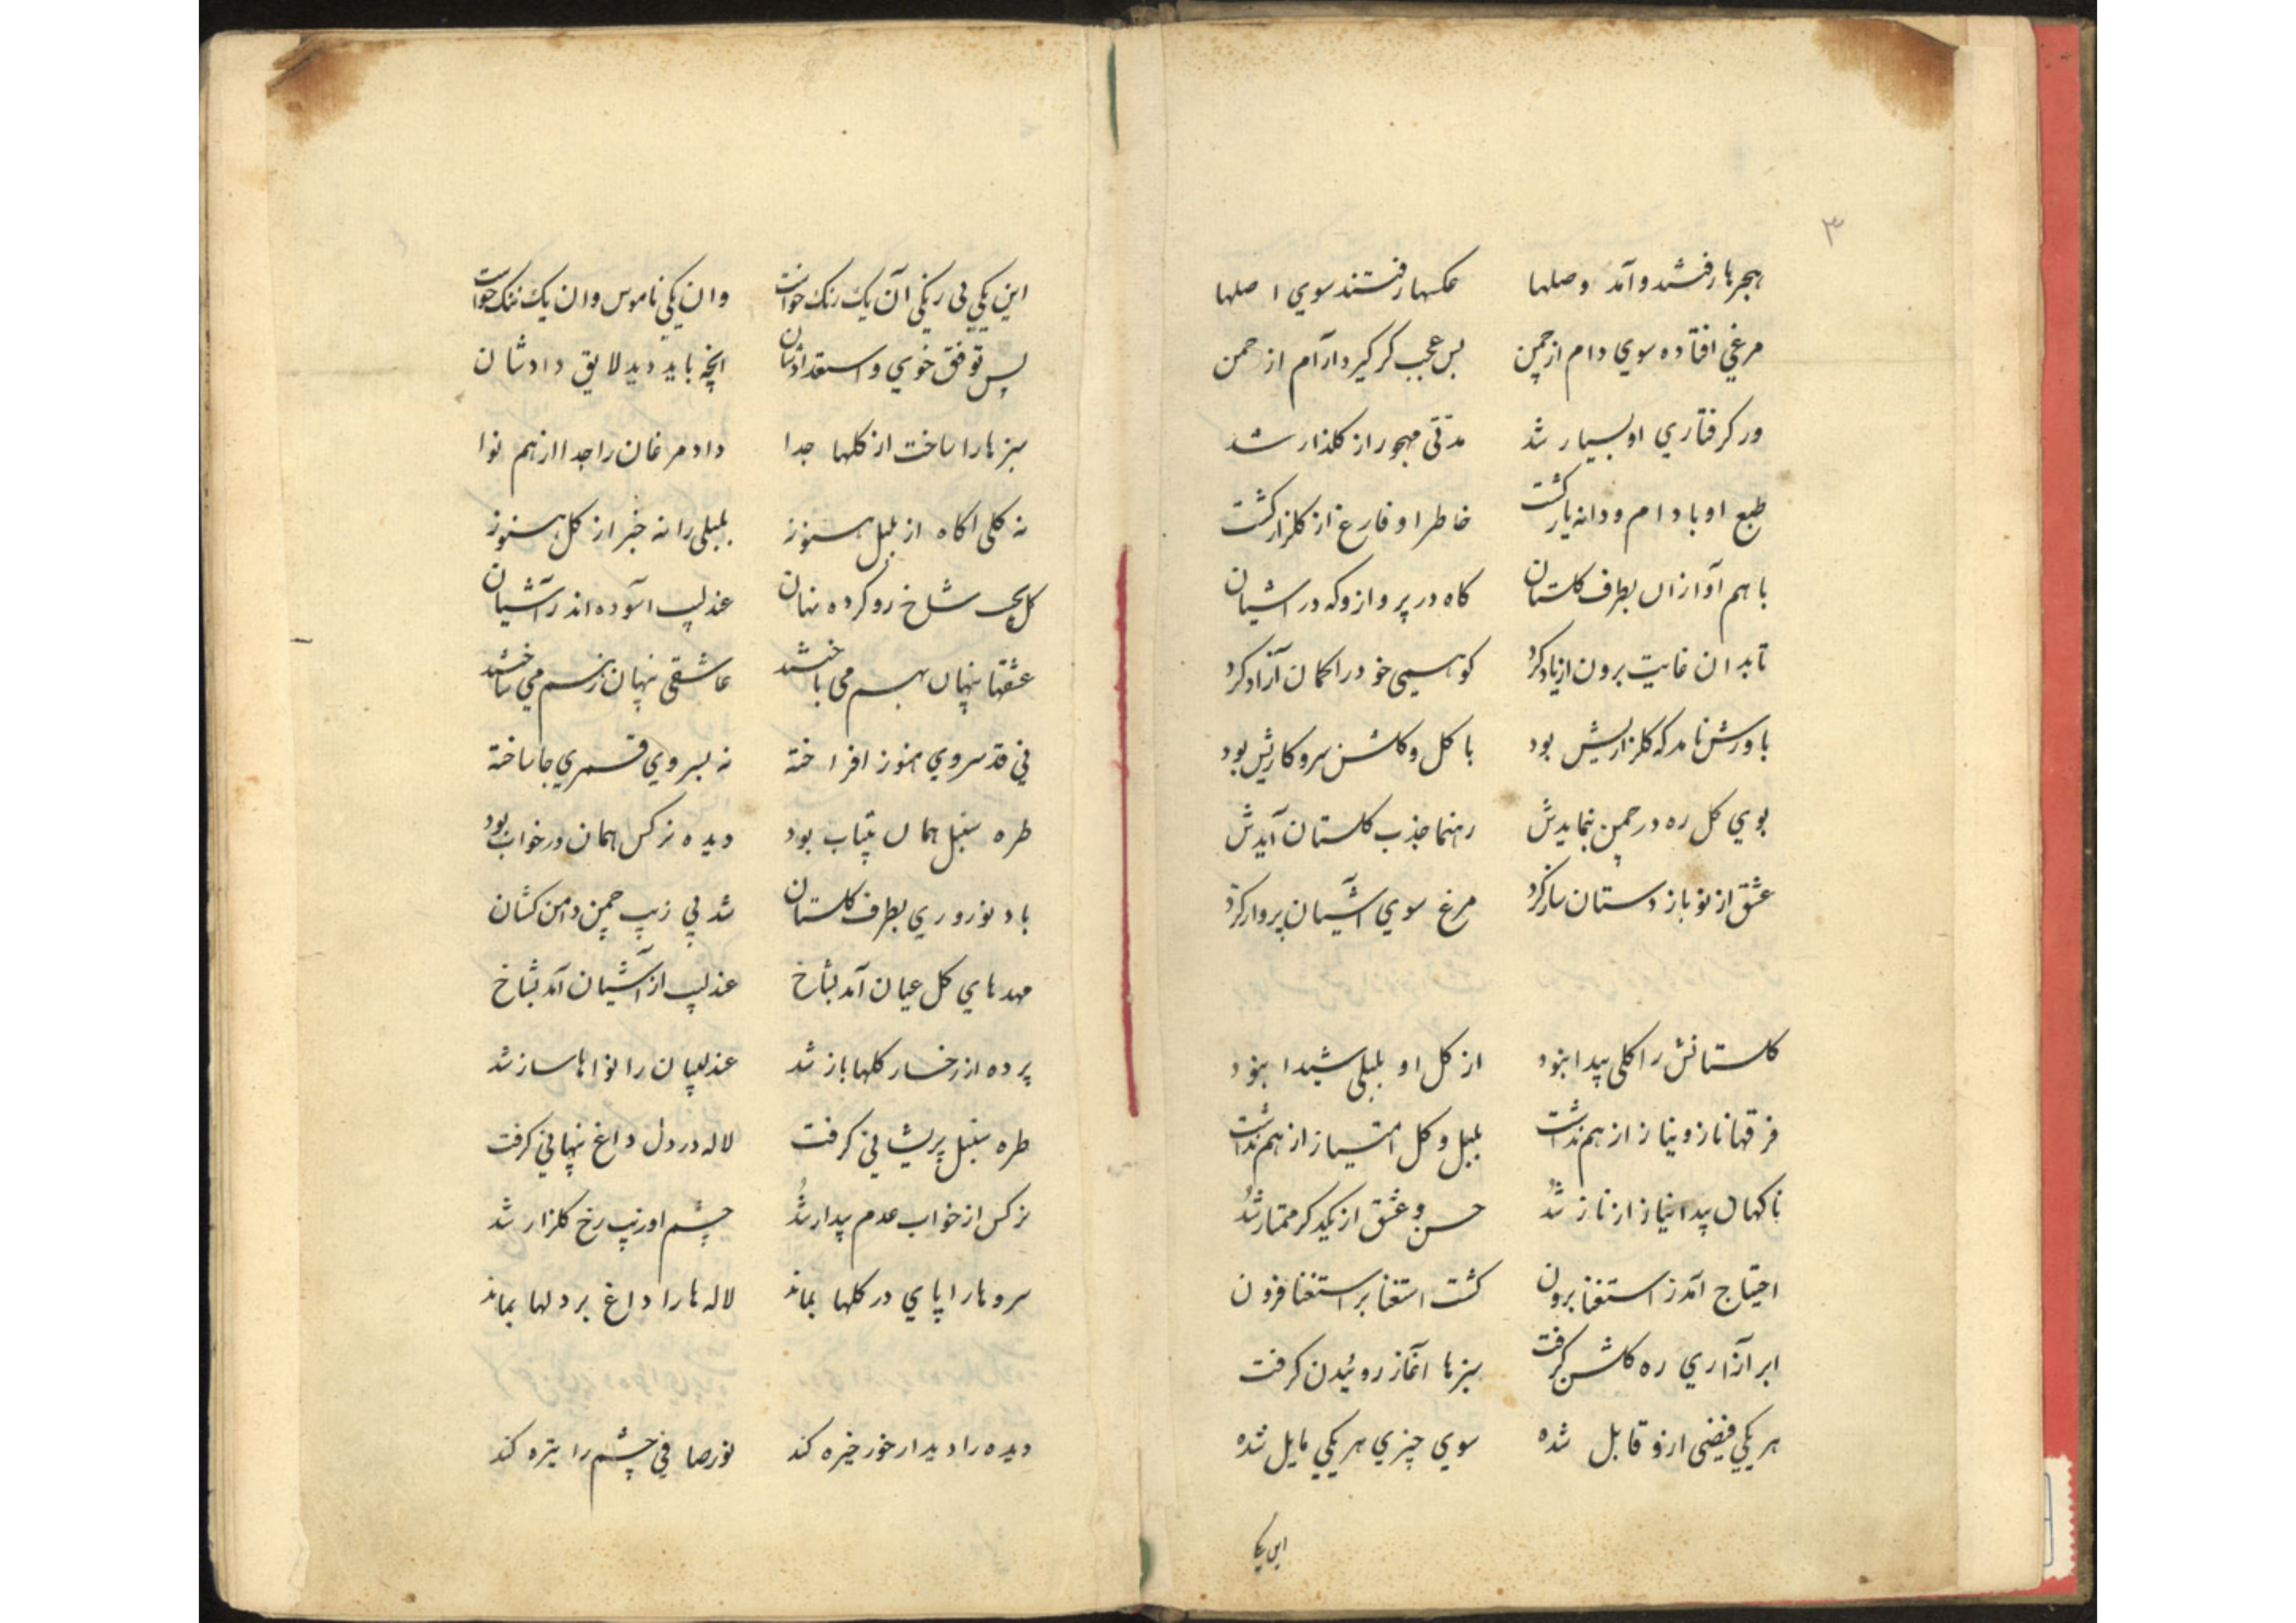 ۳
هجرها رفتند و آمد وصلها عکسها رفتند سوي اصلها
مرغي افتاده سوي دام از چمن بس عجب کر کیرد آرام از چمن
ور کرفتاري او بسیار شد مدتی مهجور از کلذار شد
طبع او با دام و دانه یار کشت خاطر او فارغ از کلزار کشت
با هم آوازان بطرف کلستان کاه در پرواز و که در اشیان
تا بدان غایت برون از یاد کرد کو همی خود را کمان آزاد کرد
باورش نامد که کلزاریش بود با کل و کلشن سر و کاریش بود
بوي کل ره در چمن بنمایدش رهنما جذب کلستان آیدش
عشق از نو باز دستان ساز کرد مرغ سوي آشیان پرواز کرد
کلستانش را کلی پیدا نبود از کل او بلبلی شیدا نبود
فرقها ناز و نیاز از هم نداشت بلبل و کل امتیاز از هم نداشت
ناکهان پیدا نیاز از ناز شد حسن و عشق از یکدکر ممتاز شد
احتیاج آمد ز استغنا برون کشت استغنا بر استغنا فزون
ابر آزاري ره کلشن کرفت سبزها آغاز روئیدن کرفت
هر یکي فیضی ازو قابل شده سوي چیزي هر یکي مایل شده
این یکی
این یکي بی رنکی آن یک رنک خواست وان یکي ناموس وان یک ننک خواست
پس توفق خوي و استعدادشان انچه باید دید لایق دادشان
سبزها را ساخت از کلها جدا داد مرغان را جدا از هم نوا
نه کلی اکاه از بلبل هنوز بلبلی را نه خبر از کل هنوز
کل بجیب شاخ رو کرده نهان عندلیب آسوده اندر آشیان
عشقها پنهان بهم می باختند عاشقی پنهان ز هم مي ساختند
ني قد سروي هنوز افراخته نه بسروي قمري جا ساخته
طره سنبل همان بیتاب بود دیده نرکس همان در خواب بود
باد نوروزي بطرف کلستان شد پي زیب چمن دامن کشان
مهدهاي کل عیان آمد بشاخ عندلیب از آشیان آمد بشاخ
پرده از رخسار کلها باز شد عندلیبان را نواها ساز شد
طره سنبل پریشاني کرفت لاله در دل داغ پنهاني کرفت
نرکس از خواب عدم بیدار شد چشم او زیب رخ کلزار شد
سروها را پاي در کلها بماند لاله ها را داغ بر دلها بماند
دیده را دیدار خور خیره کند نور صافي چشم را تیره کند